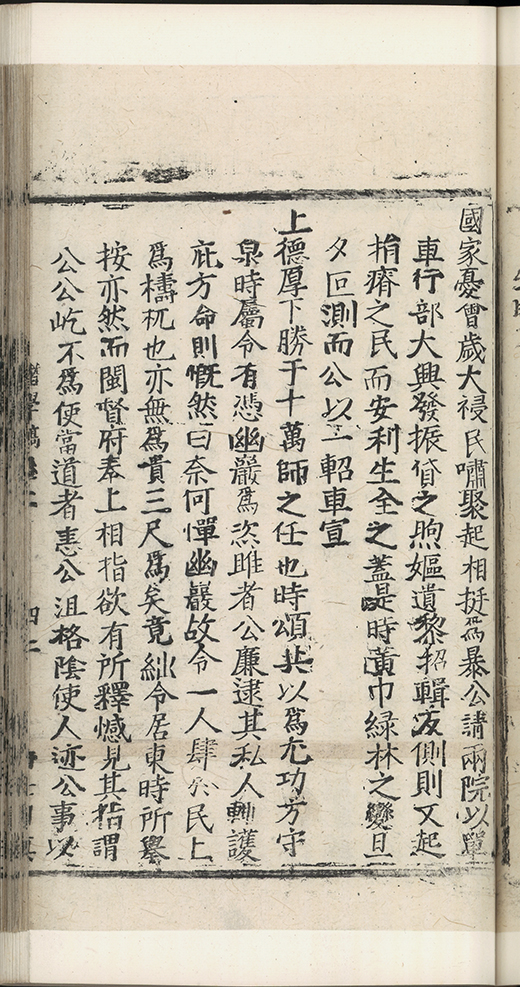 國家憂會歲大祲民嘯聚起相挺為暴公請兩院以單
車行部大興發振貸之煦嫗遺黎招輯反側則又起
捐瘠之民而安利生全之蓋是時黃巾綠林之變旦
夕叵測而公以一軺車宣
上德厚下勝于十萬師之任也時頌其以為尤功方守
泉時屬令有憑幽巖為恣睢者公廉逮其私人轉護
庇方命則慨然曰奈何憚幽巖故令一人肆於民上
為檮杌也亦無為貴三尺為矣竟絀令居東時所舉
按亦然而閩督府奉上相指欲有所釋憾見其指謂
公公屹不為使當道者恚公沮格陰使人迹公事以